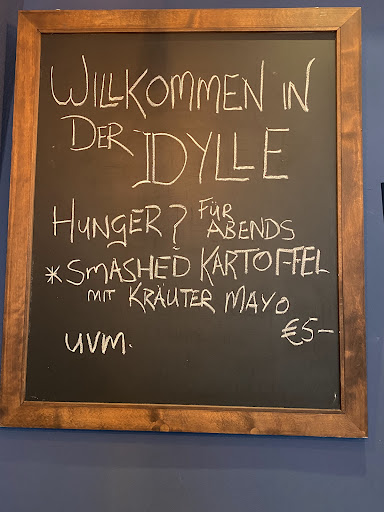 WILLKOMMEN IN
DER IDYLLE
HUNGER? FÜR
ABENDS
*SMASHED KARTOFFEL
MIT KRÄUTER MAYO
€5-
UVM.